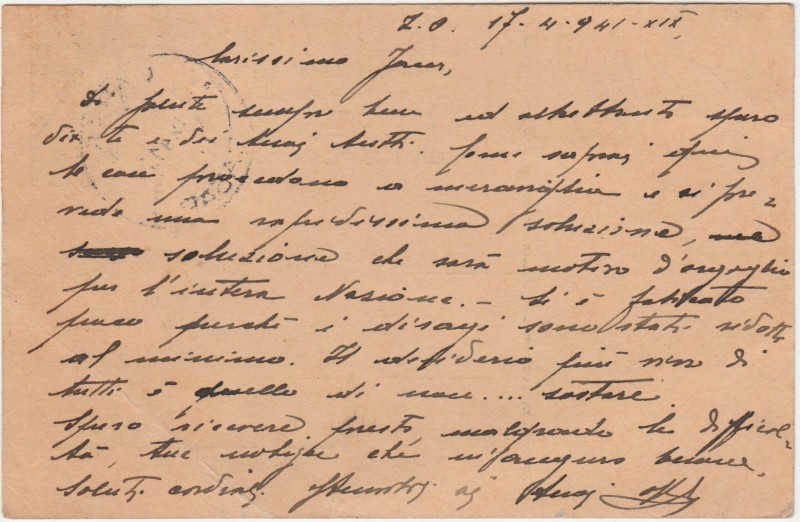 Z.O. 17-4-941-XIX.
Carissimo
Di salute sempre bene ed altrettanto spero
di te e dei tuoi tutti. Come saprai qui
le cose procedono a meraviglia e si pre=
vede una rapidissima soluzione,
soluzione che sarà motivo d'orgoglio
per l'intera Nazione. - Si è faticato
poco perché i disagi sono stati ridotti
al minimo. Il desiderio più vivo di
tutti è quello di non.... sostare
Spero ricevere presto, malgrado le difficol=
tà, tue notizie che m'auguro buone.
Saluti cordiali ai tuoi